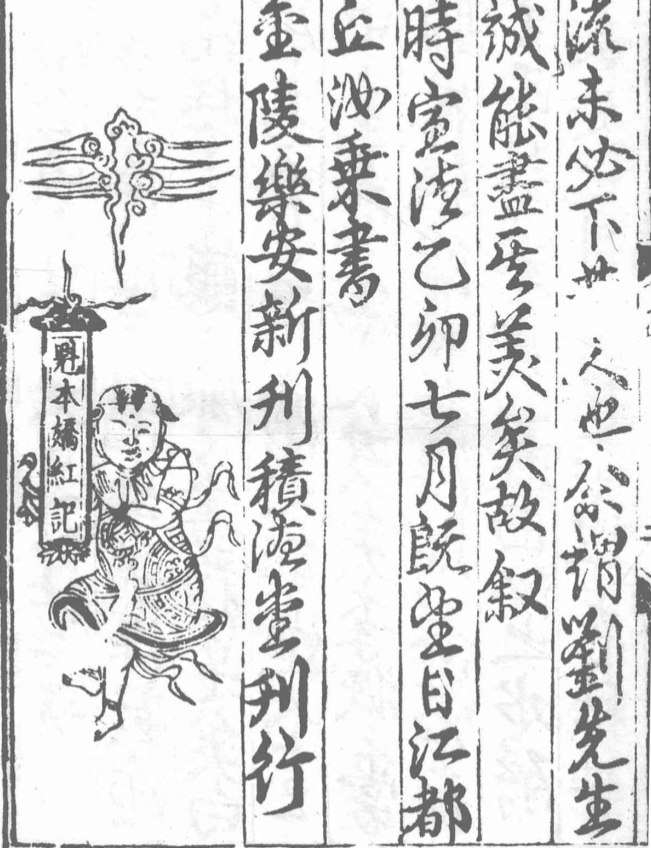 流未必下也余謂劉先生
誠能盡其美矣故叙
時宣德乙卯七月既望日江都
丘汝乗書
金陵樂安新刊積德堂刊行
魁本嬌紅記